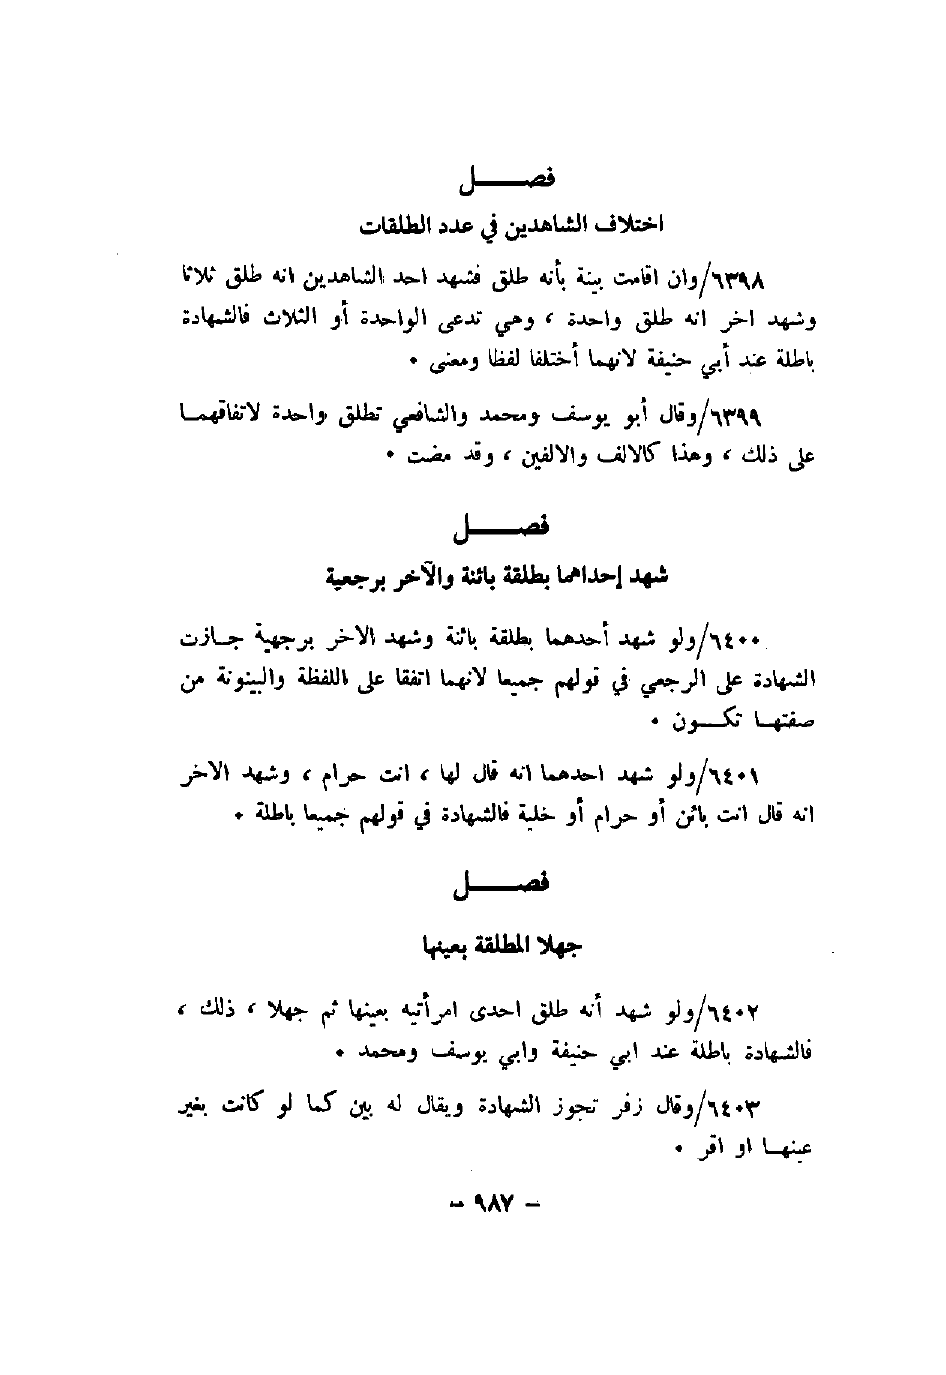 فصـــــل
اختلاف الشاهدين في عدد الطلقات
٦٣٩٨/وان اقامت بينة بأنه طلق فشهد احد الشاهدين انه طلق ثلاثا
وشهد اخر انه طلق واحدة ، وهي تدعى الواحدة أو الثلاث فالشهادة
باطلة عند أبي حنيفة لانهما أختلفا لفظا ومعنى ٠
٦٣٩٩/وقال أبو يوسف ومحمد والشافعي تطلق واحدة لاتفاقهمـا
على ذلك ، وهذا كالالف والالفين ، وقد مضت ٠
فصـــــل
شهد إحداهما بطلقة بائنة والآخر برجعية
٦٤٠٠/ولو شهد أحدهما بطلقة بائنة وشهد الاخر برجهية جـازت
الشهادة على الرجعي في قولهم جميعا لانهما اتفقا على اللفظة والبينونة من
صفتهـا تكـــون ٠
٦٤٠١/ولو شهد احدهما انه قال لها ، انت حرام ، وشهد الاخر
انه قال انت بائن أو حرام أو خلية فالشهادة في قولهم جميعا باطلة ٠
فصـــــل
جهلا المطلقة بعينها
٦٤٠٢/ولو شهد أنه طلق احدى امرأتيه بعينها ثم جهلا ، ذلك ،
فالشهادة باطلة عند ابي حنيفة وابي يوسف ومحمد ٠
٦٤٠٣/وقال زفر تجوز الشهادة ويقال له بين كما لو كانت بغير
عينهـا او اقر ٠
– ٩٨٧ –